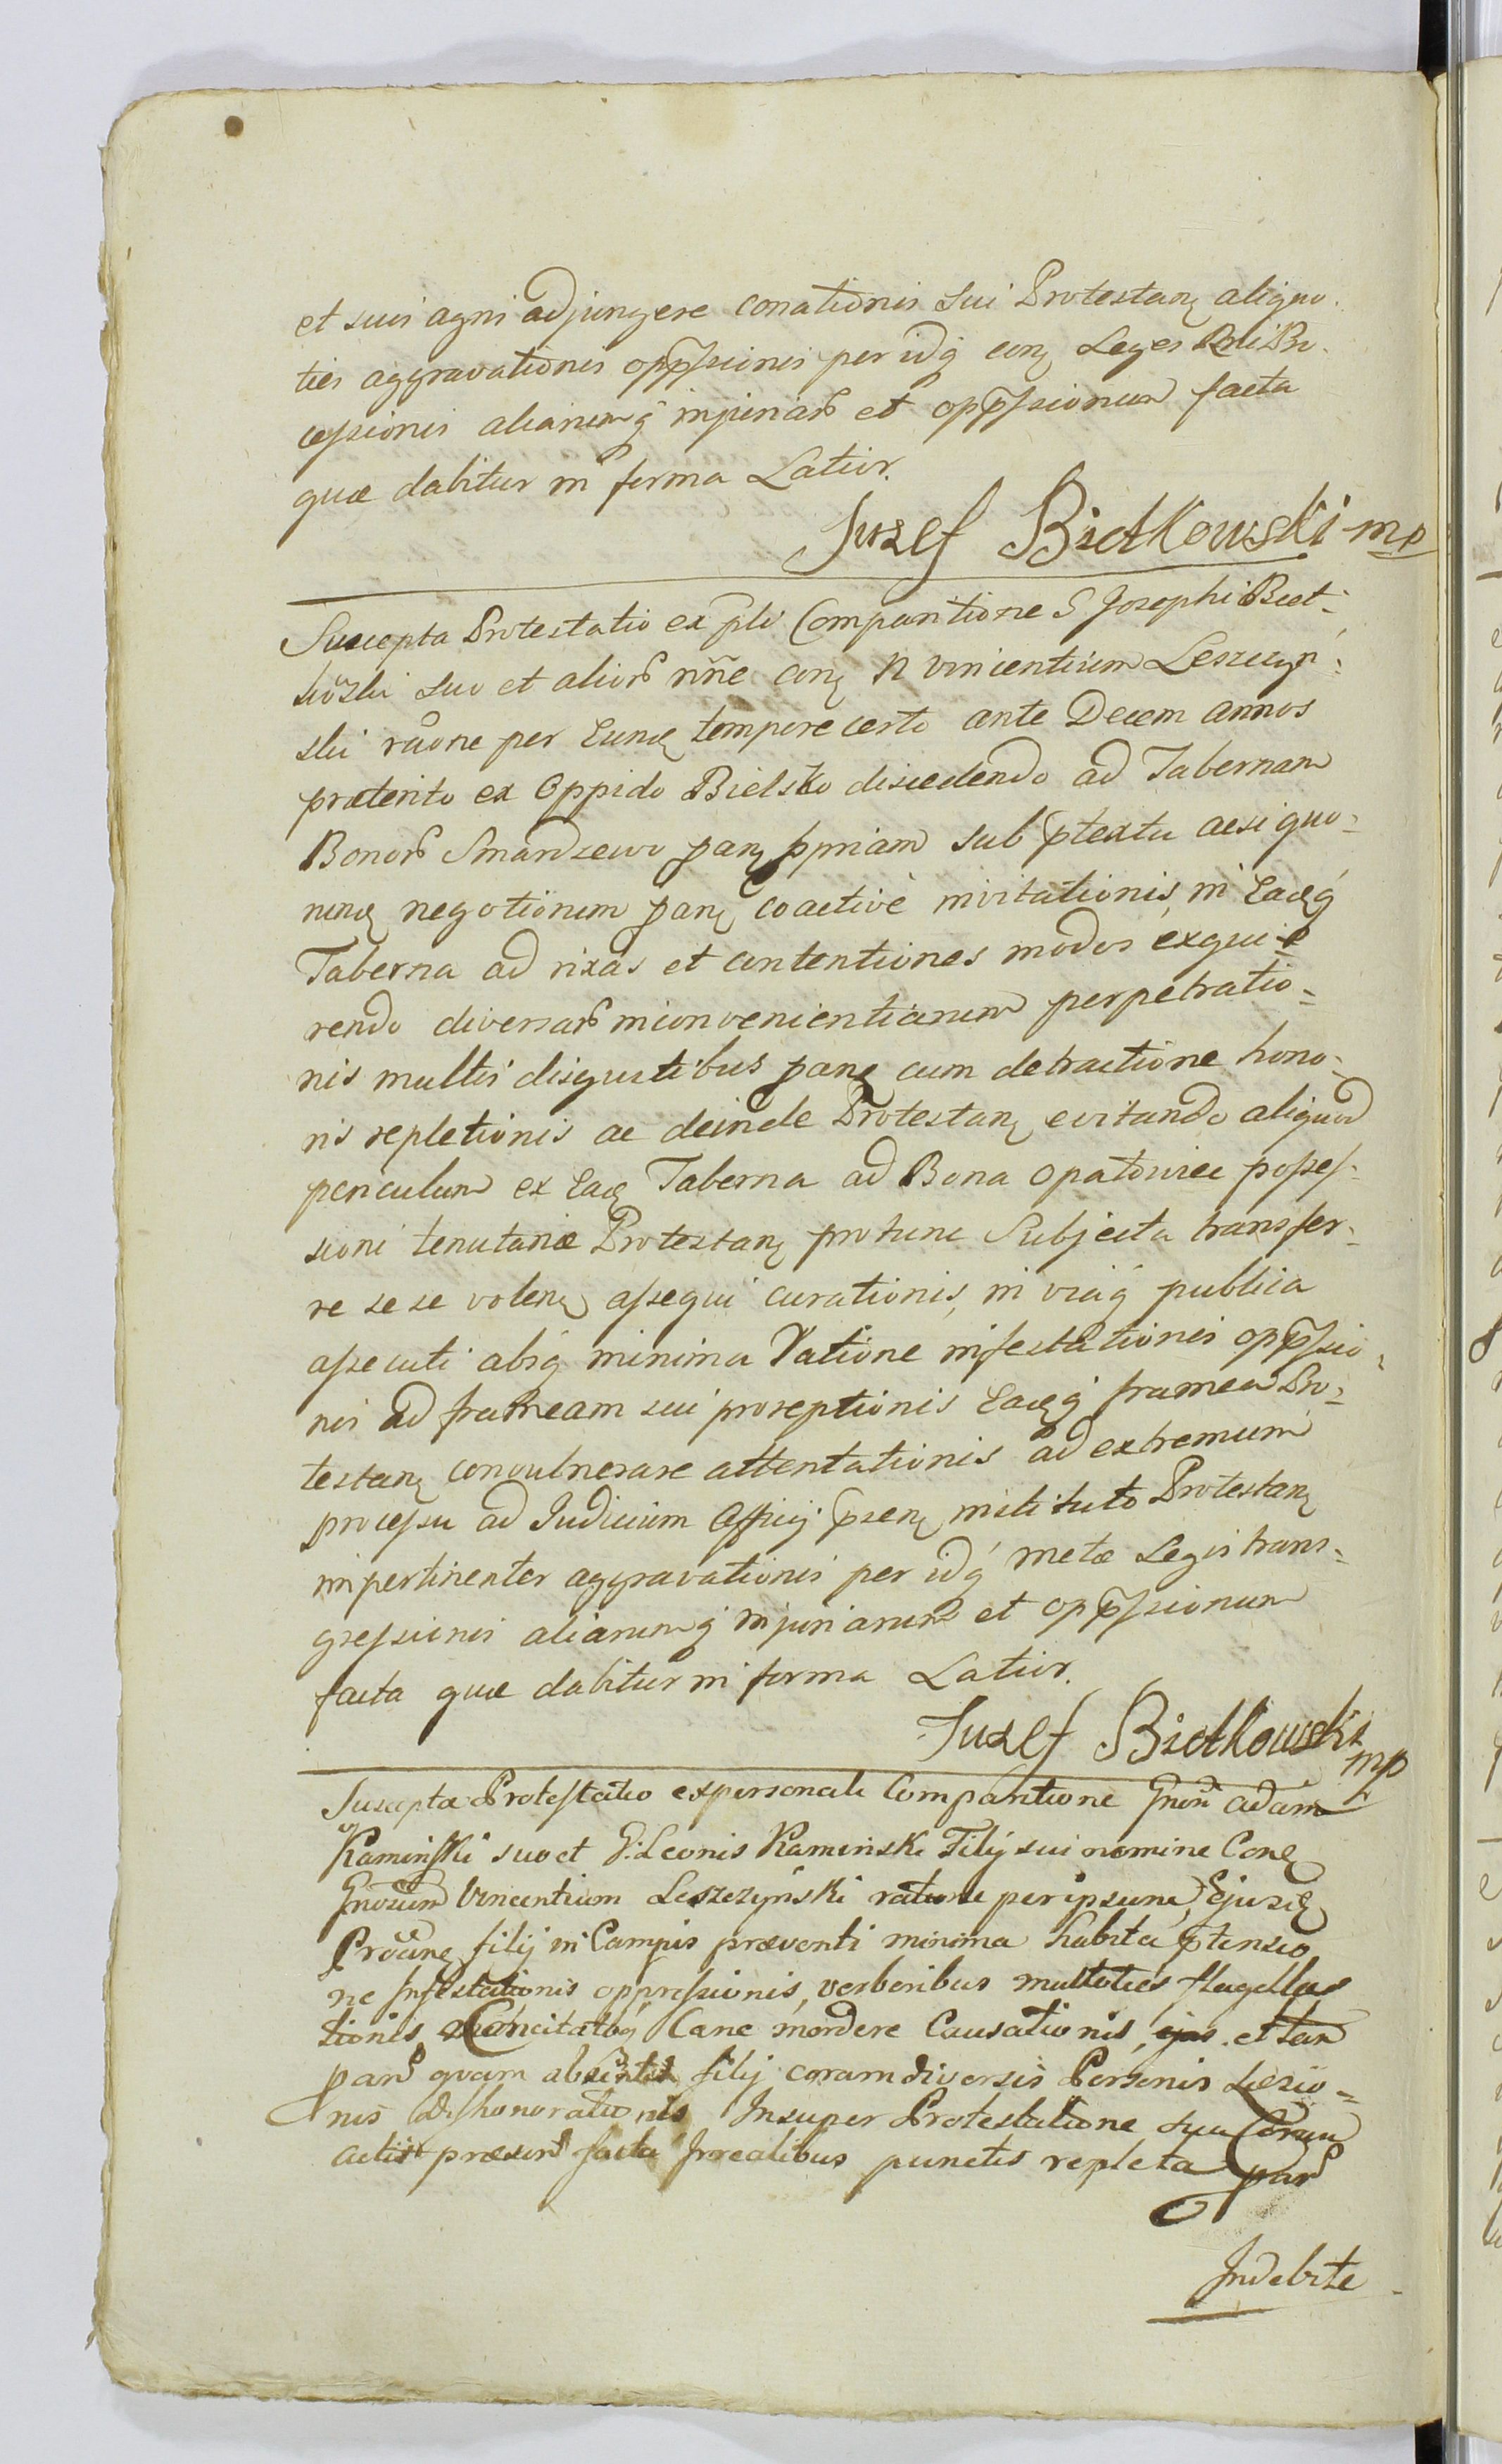 et suis agris adjungere conationis sui Protestan aliquo-
ties aggravationis opp̄ssionis per idq̃ con Leges
cessionis aliarumq̃ injuriar̄ et opp̄ssionum facta
quæ dabitur in forma Latior.
Jozef Biétkowski mp
Suscepta Protestatio ex p̄li Comparitione G Josephi Biet-
kowski suo et alior̄ nn̄e con N Vincentium Leszczyń-
ski rãone per Eund tempore certo ante Decem annos
præterito ex Oppido Bielsko discedendo ad Tabernam
Bonor̄ Smardzewo pan ppriam sub ptextu acsi quo-
rund negotiorum pan coactivè invitationis, in Eadq̃
Taberna ad rixas et contentiones modos exqui-
rendo diversar̄ inconvenientiarum perpetratio-
nis multis disgustibus pan cum detractione hono-
ris repletionis ac deinde Protestan evitando aliquod
periculum ex Ead Taberna ad Bona Opatowiec posses-
sioni tenutariæ Protestan protunc Subjecta transfer-
re sese volen assequi curationis, in viaq̃ publica
assecuti absq̃ minima Ratione infestationis opp̄ssio-
nis ad frameam sui proreptionis Eadq̃ framea Pro-
testan convulnerare attentationis ad extremum
processu ad Judicium Officij p̄sen instituto Protestan
impertinenter aggravationis per idq̃ metæ Legis trans-
gressionis aliarumq̃ injuriarum et opp̄ssionum
facta quæ dabitur in forma Latior.
Jozef Biétkowski
mp
Suscepta Protestatio ex personali Comparitione Gnēri Adam
Kaminski suo et G: Leonis Kaminski Filij sui nomine Con
Gnōsum Vincentium Leszczyński ratione per ipsum, Ejusd
filij in Campis præventi minima habita p̄tensio
ne Infestationis oppressionis, verberibus multoties flagella
tionis, Concitatoq̃ Cane mordere Causationis, et tam
par̄ quam absentis filij coram diversis Personis Læsio-
nis dishonorationis, Insuper Protestatione sua Coram
actis præsen facta Irrealibus punctis repleta par̄
Indebite